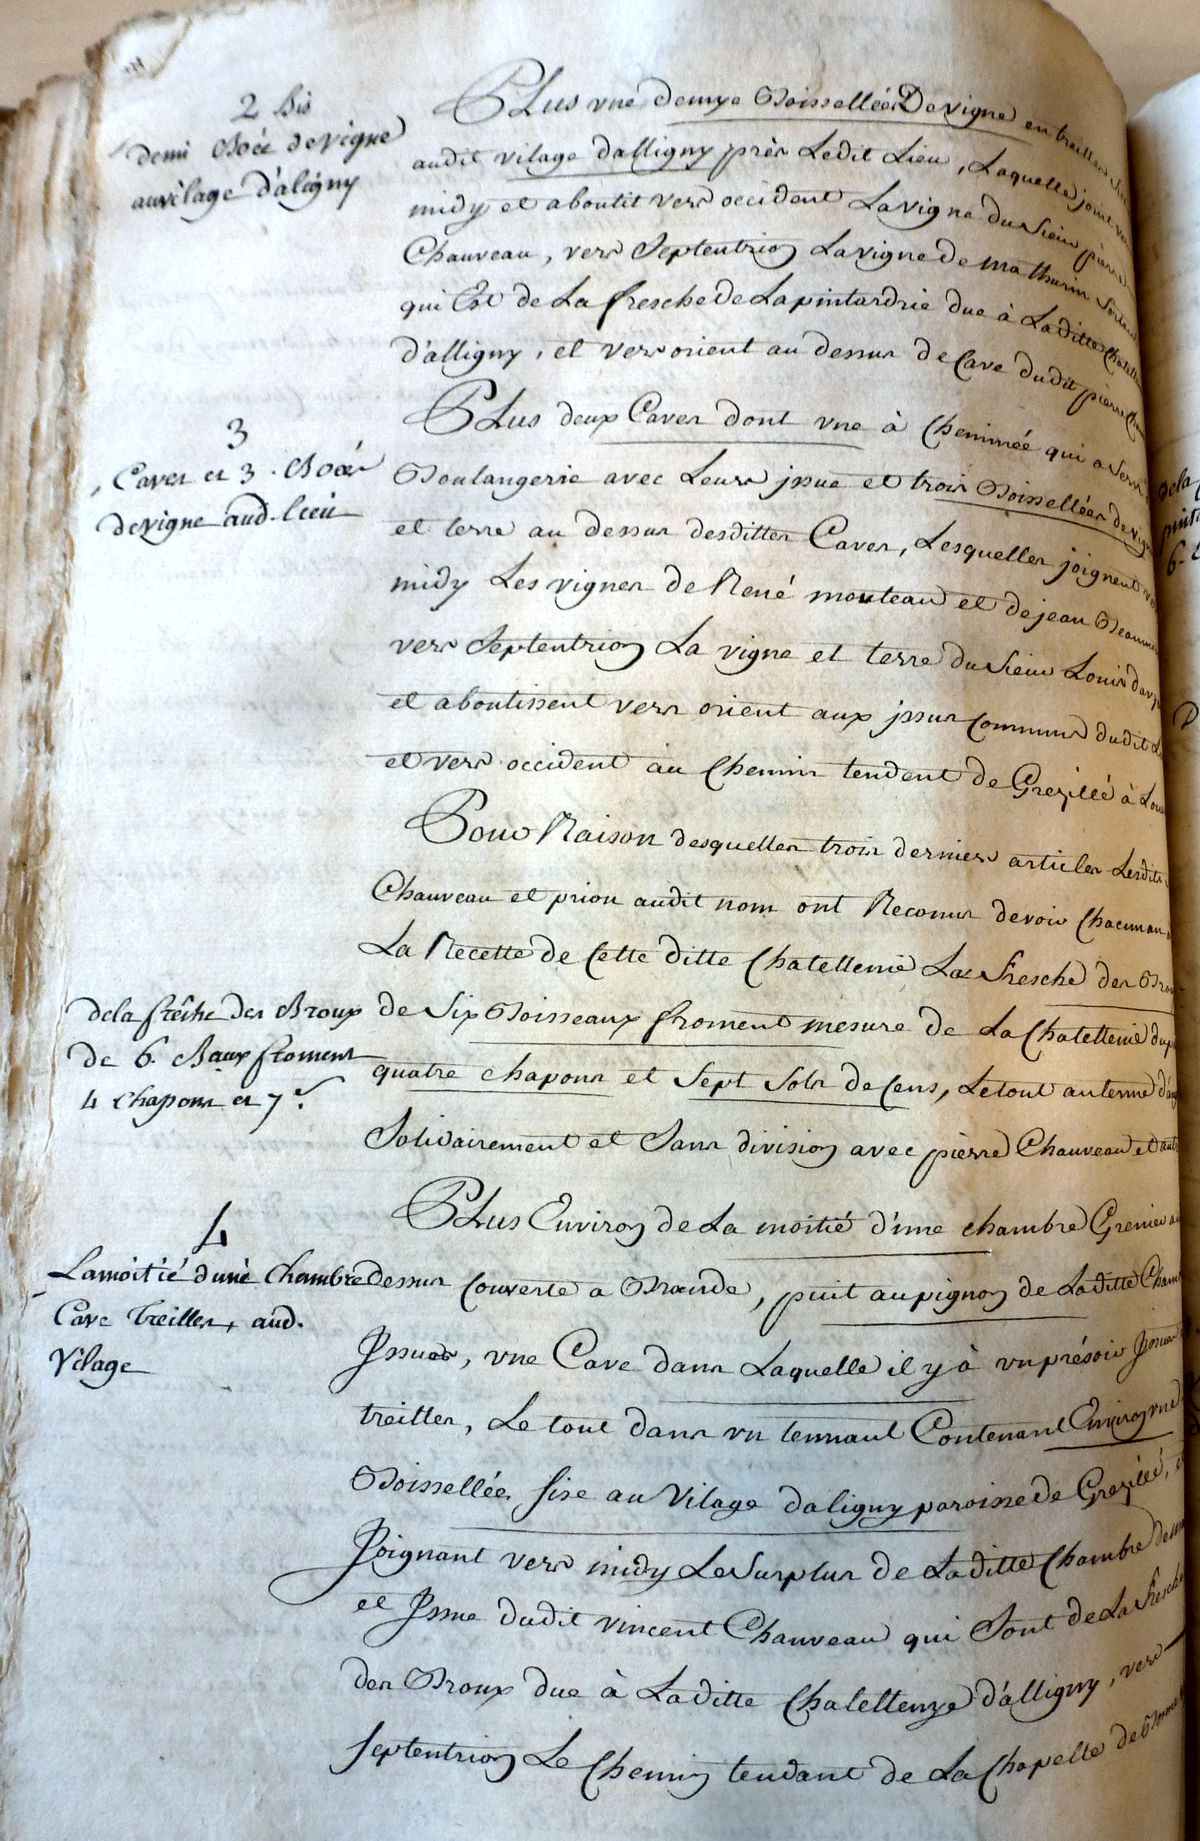 2 bis
demi Boée de vigne
au vilage d'aligny
PLus vne demye Boisselléé De vigne en treilles
audit vilage dalligny près Ledit Lieu, Laquelle joint vers
midy et aboutit vers occident La vigne du Sieur pierre
Chauveau, vers Septentrion La vigne De mathurin
qui Est de La fresche de La pintardrie due à La ditte Chatelle
d'alligny, et vers orient au dessus de Cave dudit pierre
3
Caves et 3. Boéé
de vigne aud. lieu
PLus deux Caves dont vne à Cheminéé qui a servi
Boulangerie avec Leurs jssue et trois Boisselléés de vigne
et terre au dessus desdittes Caves, Lesquelles joignent
midy Les vignes de René mouteau et de jean
vers Septentrion La vigne et terre du Sieur Louis
et aboutissent vers orient aux jssues Commune dudit
et vers occident au Chemin tendent de Grezillé à
Pour Raison desquelles trois derniers articles Lesdits
Chauveau et priou audit nom ont Reconnus devoir Chacun an
La Recette de Cette ditte Chatellenie La fresche des
de la frêche des Broux
de 6. Baux froment
4 Chapons et 7s.
de Six Boisseaux froment mesure de La Chatellenie
quatre chapons et Sept Sols de Cens, Le tout au terme
Solidairement et Sans division avec pierre Chauveau et
4
La moitié d'une Chambre
Cave treilles, aud.
Vilage
PLus Environ de La moitié d'une chambre Grenier au
dessus Couverte a Brande, puit au pignon de La ditte
Jssues, vne Cave dans Laquelle il y à vn présoir Jssues
treilles, Le tout dans vn tennant Contenant Environ vne
Boissellée Sise au Vilage daligny paroisse De Grezillé,
Joignant vers midy Le Surplus de La ditte Chambre
et Jssue dudit vincent Chauveau qui Sont de La fresche
des Broux due à La ditte Chatellenye d'alligny, vers
Septentrion Le Chemin tendant de La Chapelle de